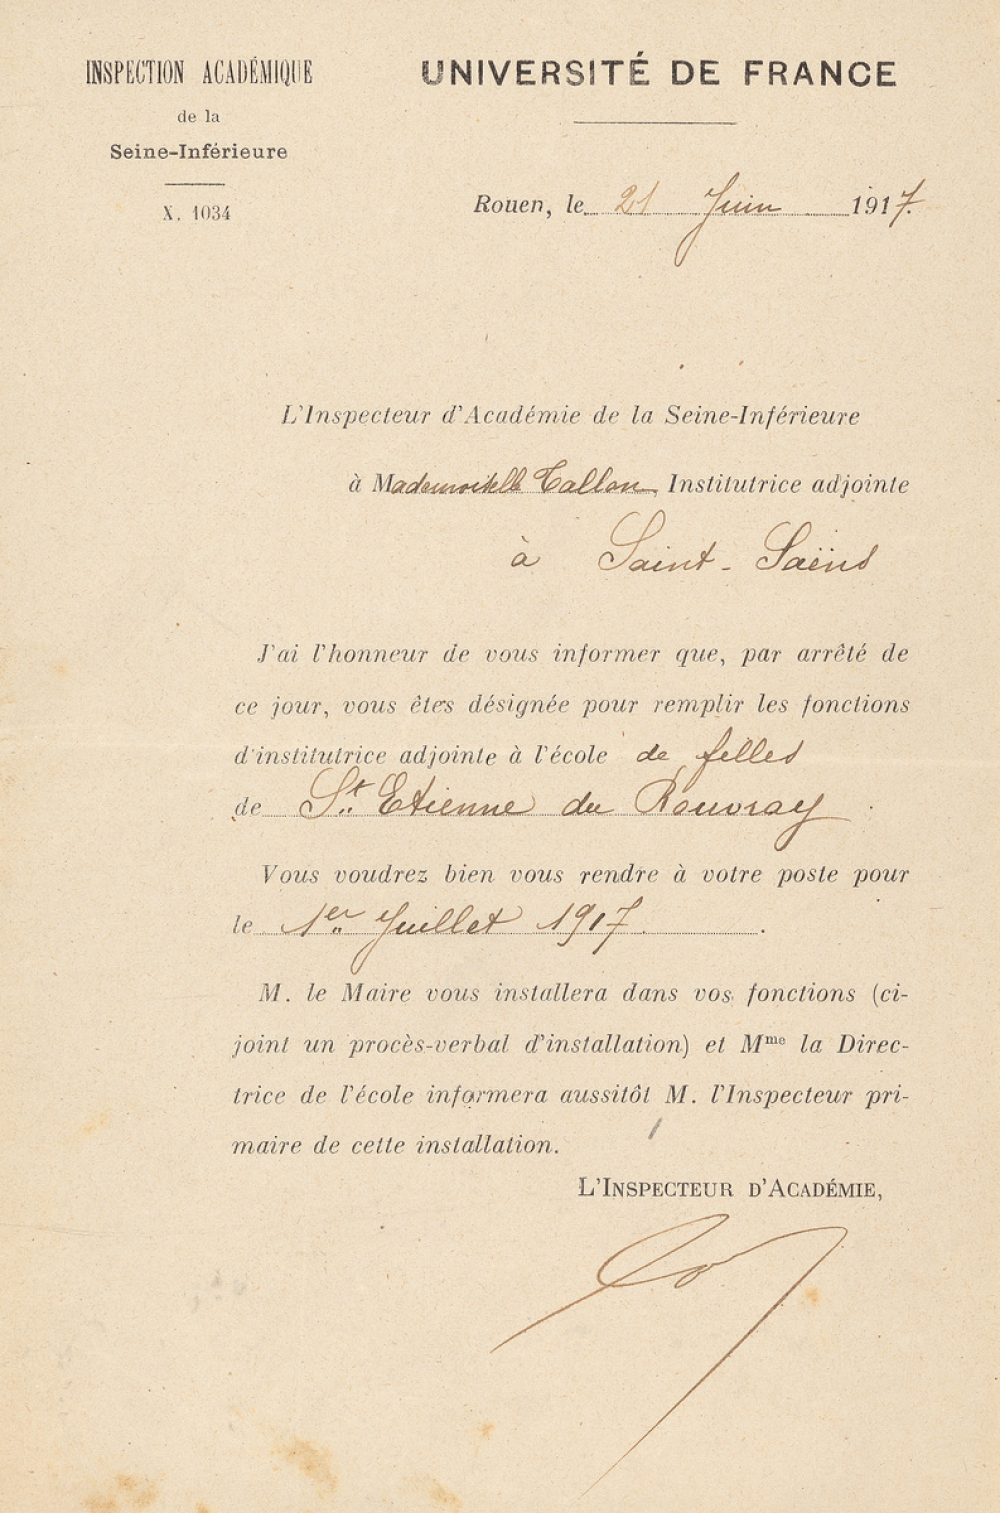 INSPECTION ACADÉMIQUE
de la
Seine-Inférieure
X. 1034
UNIVERSITÉ DE FRANCE
Rouen, le 21 Juin 1917.
L'Inspecteur d'Académie de la Seine-Inférieure
à Mademoiselle Tallon, Institutrice adjointe
à Saint-Saëns
J'ai l'honneur de vous informer que, par arrêté de
ce jour, vous êtes désignée pour remplir les fonctions
d'institutrice adjointe à l'école de filles
de St Etienne du Rouvray
Vous voudrez bien vous rendre à votre poste pour
le 1er Juillet 1917.
M. le Maire vous installera dans vos fonctions (ci-
joint un procès-verbal d'installation) et Mme la Direc-
trice de l'école informera aussitôt M. l'Inspecteur pri-
maire de cette installation.
L'INSPECTEUR D'ACADÉMIE,